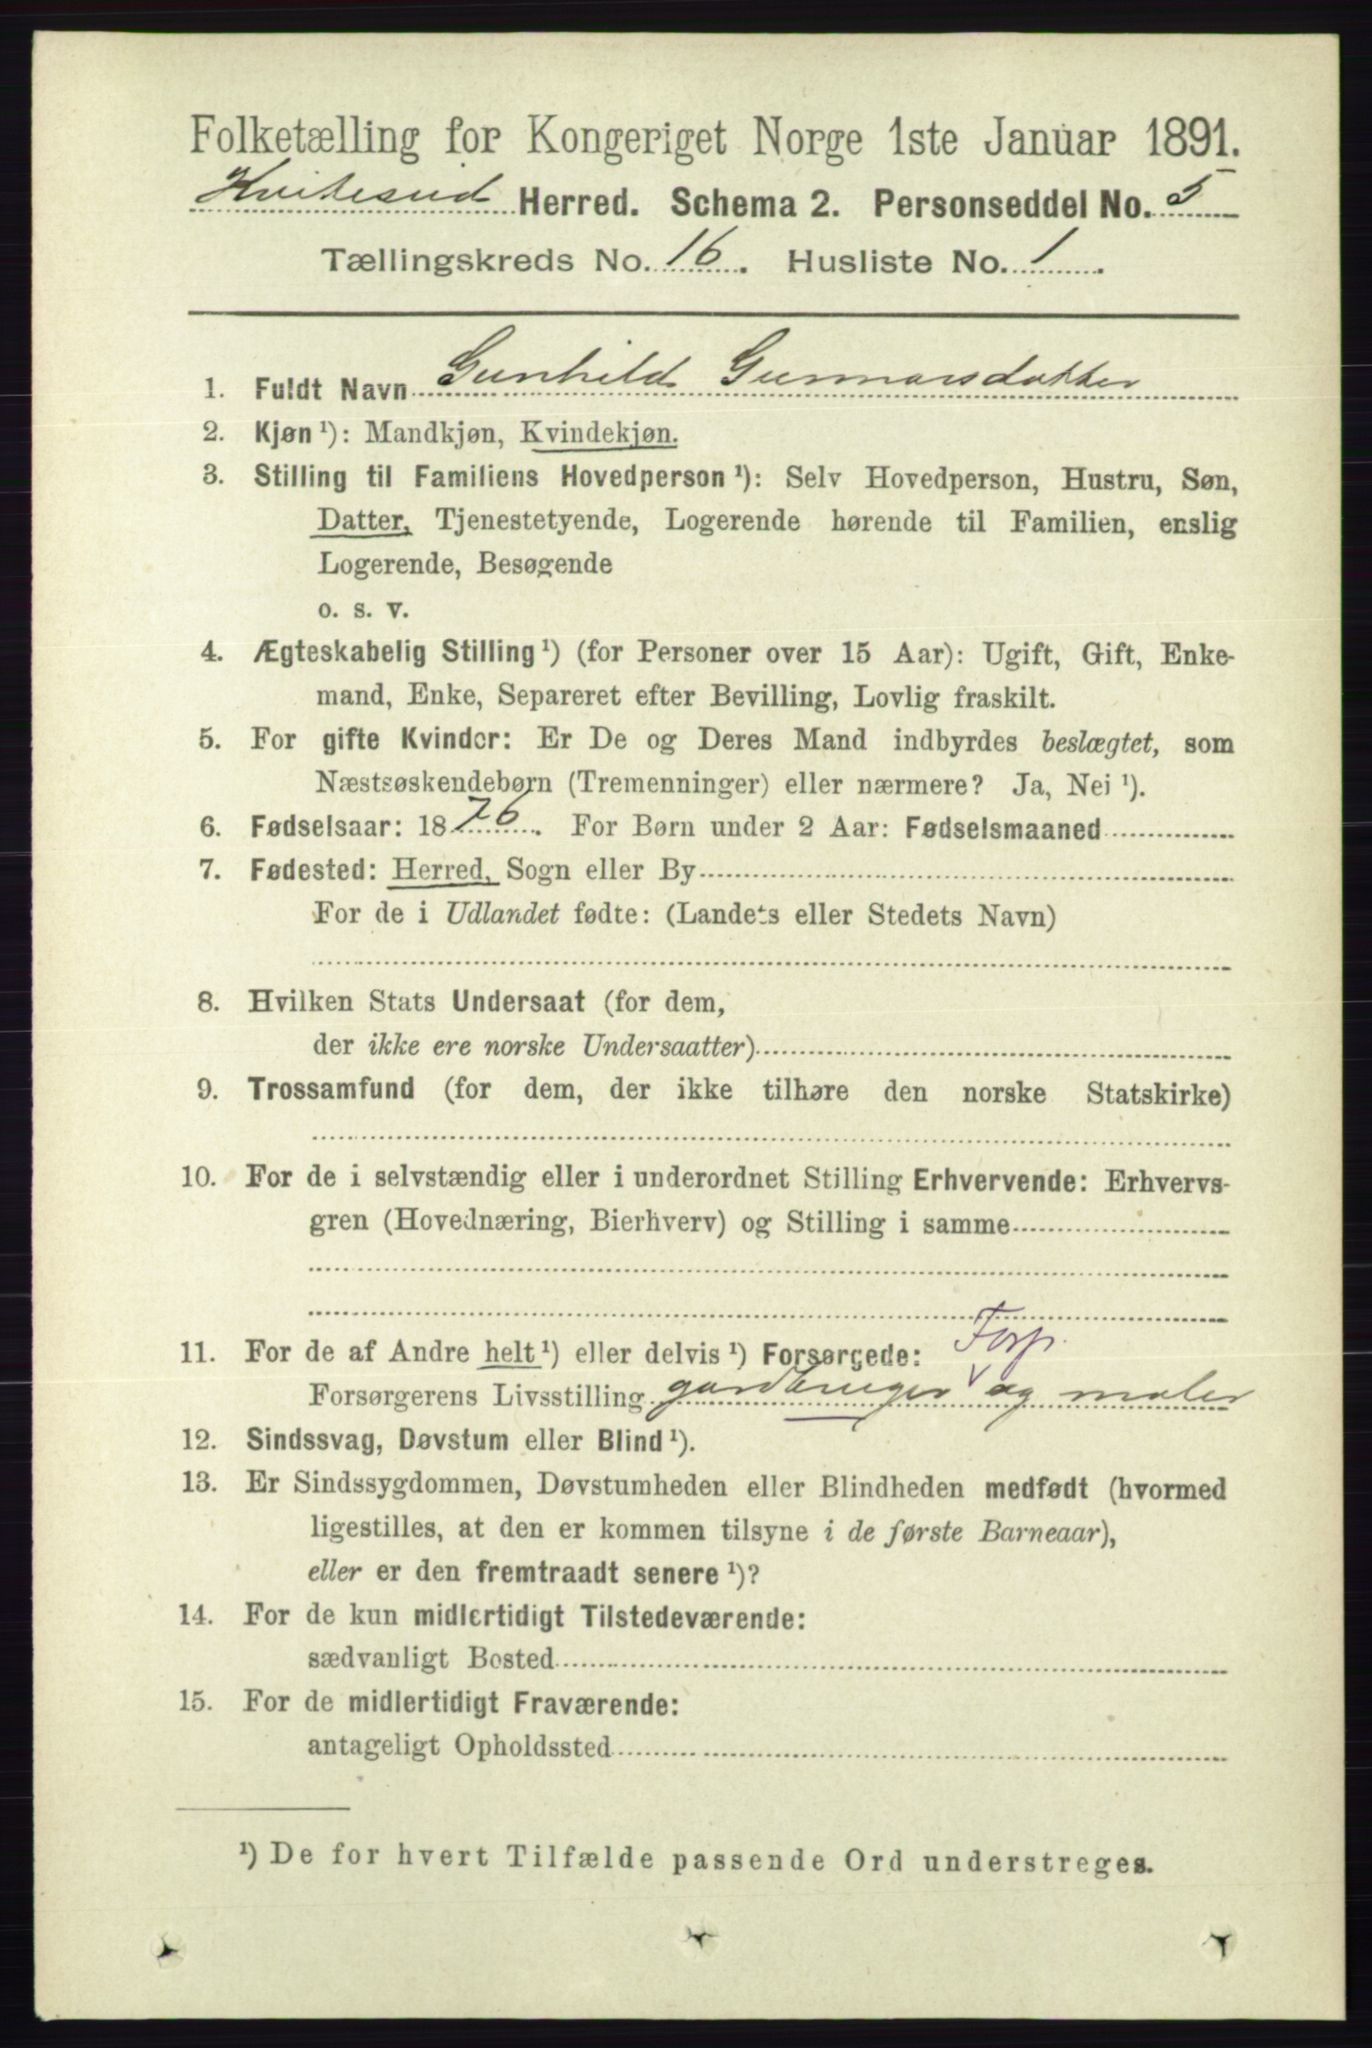 Folketælling for Kongeriget Norge 1ste Januar 1891.
Hvitesid Herred. Schema 2. Personseddel No. 5
Tællingskreds No. 16. Husliste No. 1.
1. Fuldt Navn Gunhild Gunnarsdatter
2. Kjøn ¹): Mandkjøn, Kvindekjøn.
3. Stilling til Familiens Hovedperson ¹): Selv Hovedperson, Hustru, Søn,
Datter, Tjenestetyende, Logerende hørende til Familien, enslig
Logerende, Besøgende
o. s. v.
4. Ægteskabelig Stilling ¹) (for Personer over 15 Aar): Ugift, Gift, Enke-
mand, Enke, Separeret efter Bevilling, Lovlig fraskilt.
5. For gifte Kvinder: Er De og Deres Mand indbyrdes beslægtet, som
Næstsøskendebørn (Tremenninger) eller nærmere? Ja, Nei ¹).
6. Fødselsaar: 1876. For Børn under 2 Aar: Fødselsmaaned
7. Fødested: Herred, Sogn eller By
For de i Udlandet fødte: (Landets eller Stedets Navn)
8. Hvilken Stats Undersaat (for dem,
der ikke ere norske Undersaatter)
9. Trossamfund (for dem, der ikke tilhøre den norske Statskirke)
10. For de i selvstændig eller i underordnet Stilling Erhvervende: Erhvervs-
gren (Hovednæring, Bierhverv) og Stilling i samme
11. For de af Andre helt ¹) eller delvis ¹) Forsørgede: Forp.
Forsørgerens Livsstilling gardbruger og maler
12. Sindssvag, Døvstum eller Blind ¹).
13. Er Sindssygdommen, Døvstumheden eller Blindheden medfødt (hvormed
ligestilles, at den er kommen tilsyne i de første Barneaar),
eller er den fremtraadt senere ¹)?
14. For de kun midlertidigt Tilstedeværende:
sædvanligt Bosted
15. For de midlertidigt Fraværende:
antageligt Opholdssted
¹) De for hvert Tilfælde passende Ord understreges.